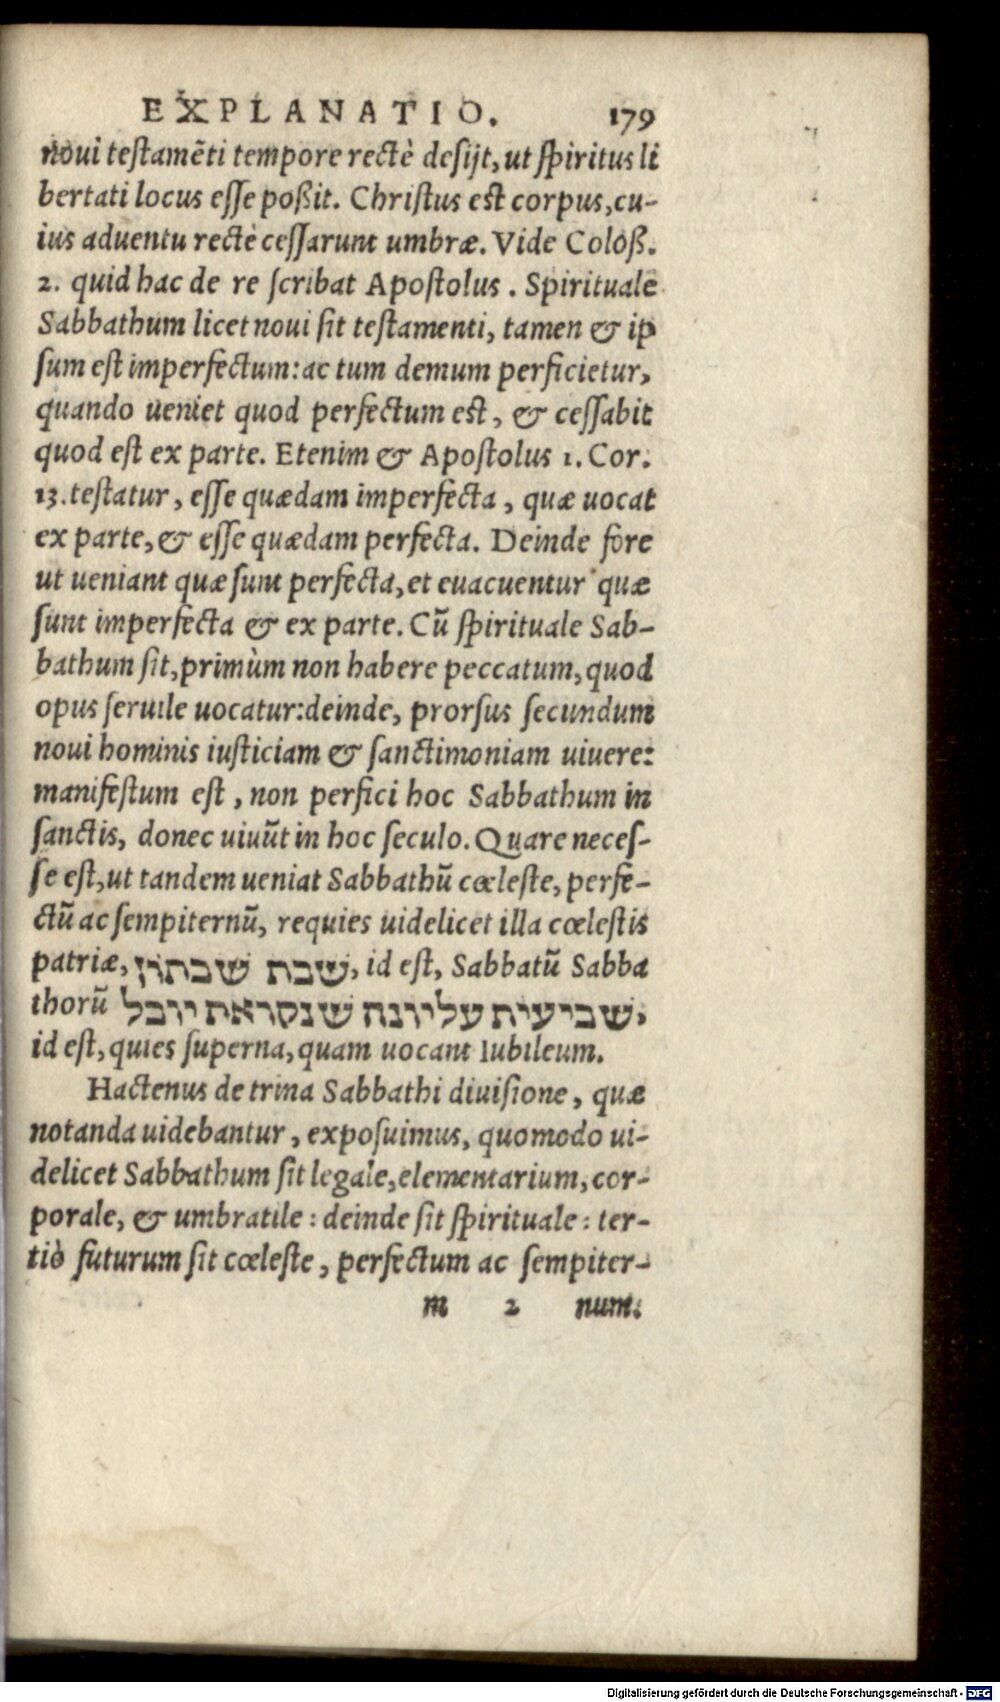 EXPLANATIO. 179
noui testamẽti tempore rectè desijt, ut spiritus li
bertati locus esse poßit. Christus est corpus, cu-
ius aduentu rectè cessarunt umbræ. Vide Coloß.
2. quid hac de re scribat Apostolus. Spirituale
Sabbathum licet noui sit testamenti, tamen & ip
sum est imperfectum: ac tum demum perficietur,
quando ueniet quod perfectum est, & cessabit
quod est ex parte. Etenim & Apostolus 1. Cor.
13. testatur, esse quædam imperfecta, quæ uocat
ex parte, & esse quædam perfecta. Deinde fore
ut ueniant quæ sunt perfecta, et euacuentur quæ
sunt imperfecta & ex parte. Cũ spirituale Sab-
bathum sit, primùm non habere peccatum, quod
opus seruile uocatur: deinde, prorsus secundum
noui hominis iusticiam & sanctimoniam uiuere:
manifestum est, non perfici hoc Sabbathum in
sanctis, donec uiuũt in hoc seculo. Quare neces-
se est, ut tandem ueniat Sabbathũ cœleste, perfe-
ctũ ac sempiternũ, requies uidelicet illa cœlestis
patriæ, שבת שבתון, id est, Sabbatũ Sabba
thorũ שביעית עליונה שנקראת יובל,
id est, quies superna, quam uocant Iubileum.
Hactenus de trina Sabbathi diuisione, quæ
notanda uidebantur, exposuimus, quomodo ui-
delicet Sabbathum sit legale, elementarium, cor-
porale, & umbratile: deinde sit spirituale: ter-
tiò futurum sit cœleste, perfectum ac sempiter-
m 2 num.
Digitalisierung gefördert durch die Deutsche Forschungsgemeinschaft - DFG